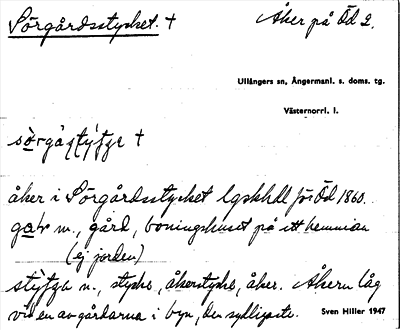 Sörgårdsstycket. † Åker på Öd 2.
Ullångers sn, Ångermanl. s. doms. tg.
Västernorrl. l.
åker i Sörgårdsstycket lgskhdl för Öd 1860.
m., gård, boningshuset på ett hemman
(ej jorden)
n., stycke, åkerstycke, åker. Åkern låg
vid en av gårdarna i byn, den sydligaste.
Sven Hiller 1947